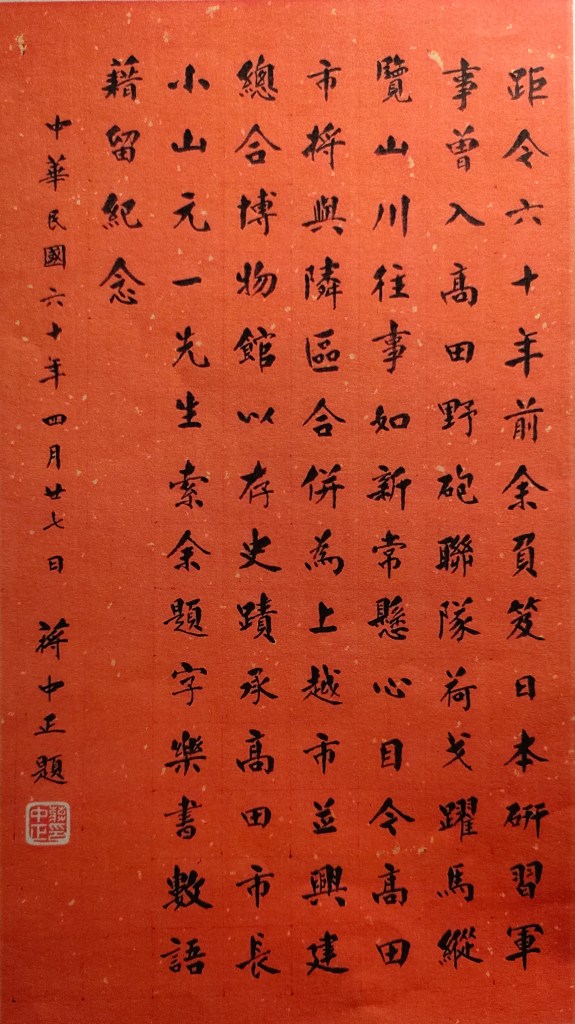 距今六十年前余負笈日本研習軍
事曾入高田野砲聯隊荷戈躍馬縱
覽山川往事如新常懸心目今高田
市將與隣區合併為上越市並興建
總合博物館以存史蹟承高田市長
小山元一先生索余題字樂書數語
藉留紀念
中華民國六十年四月廿七日 蔣中正題
蔣中正印